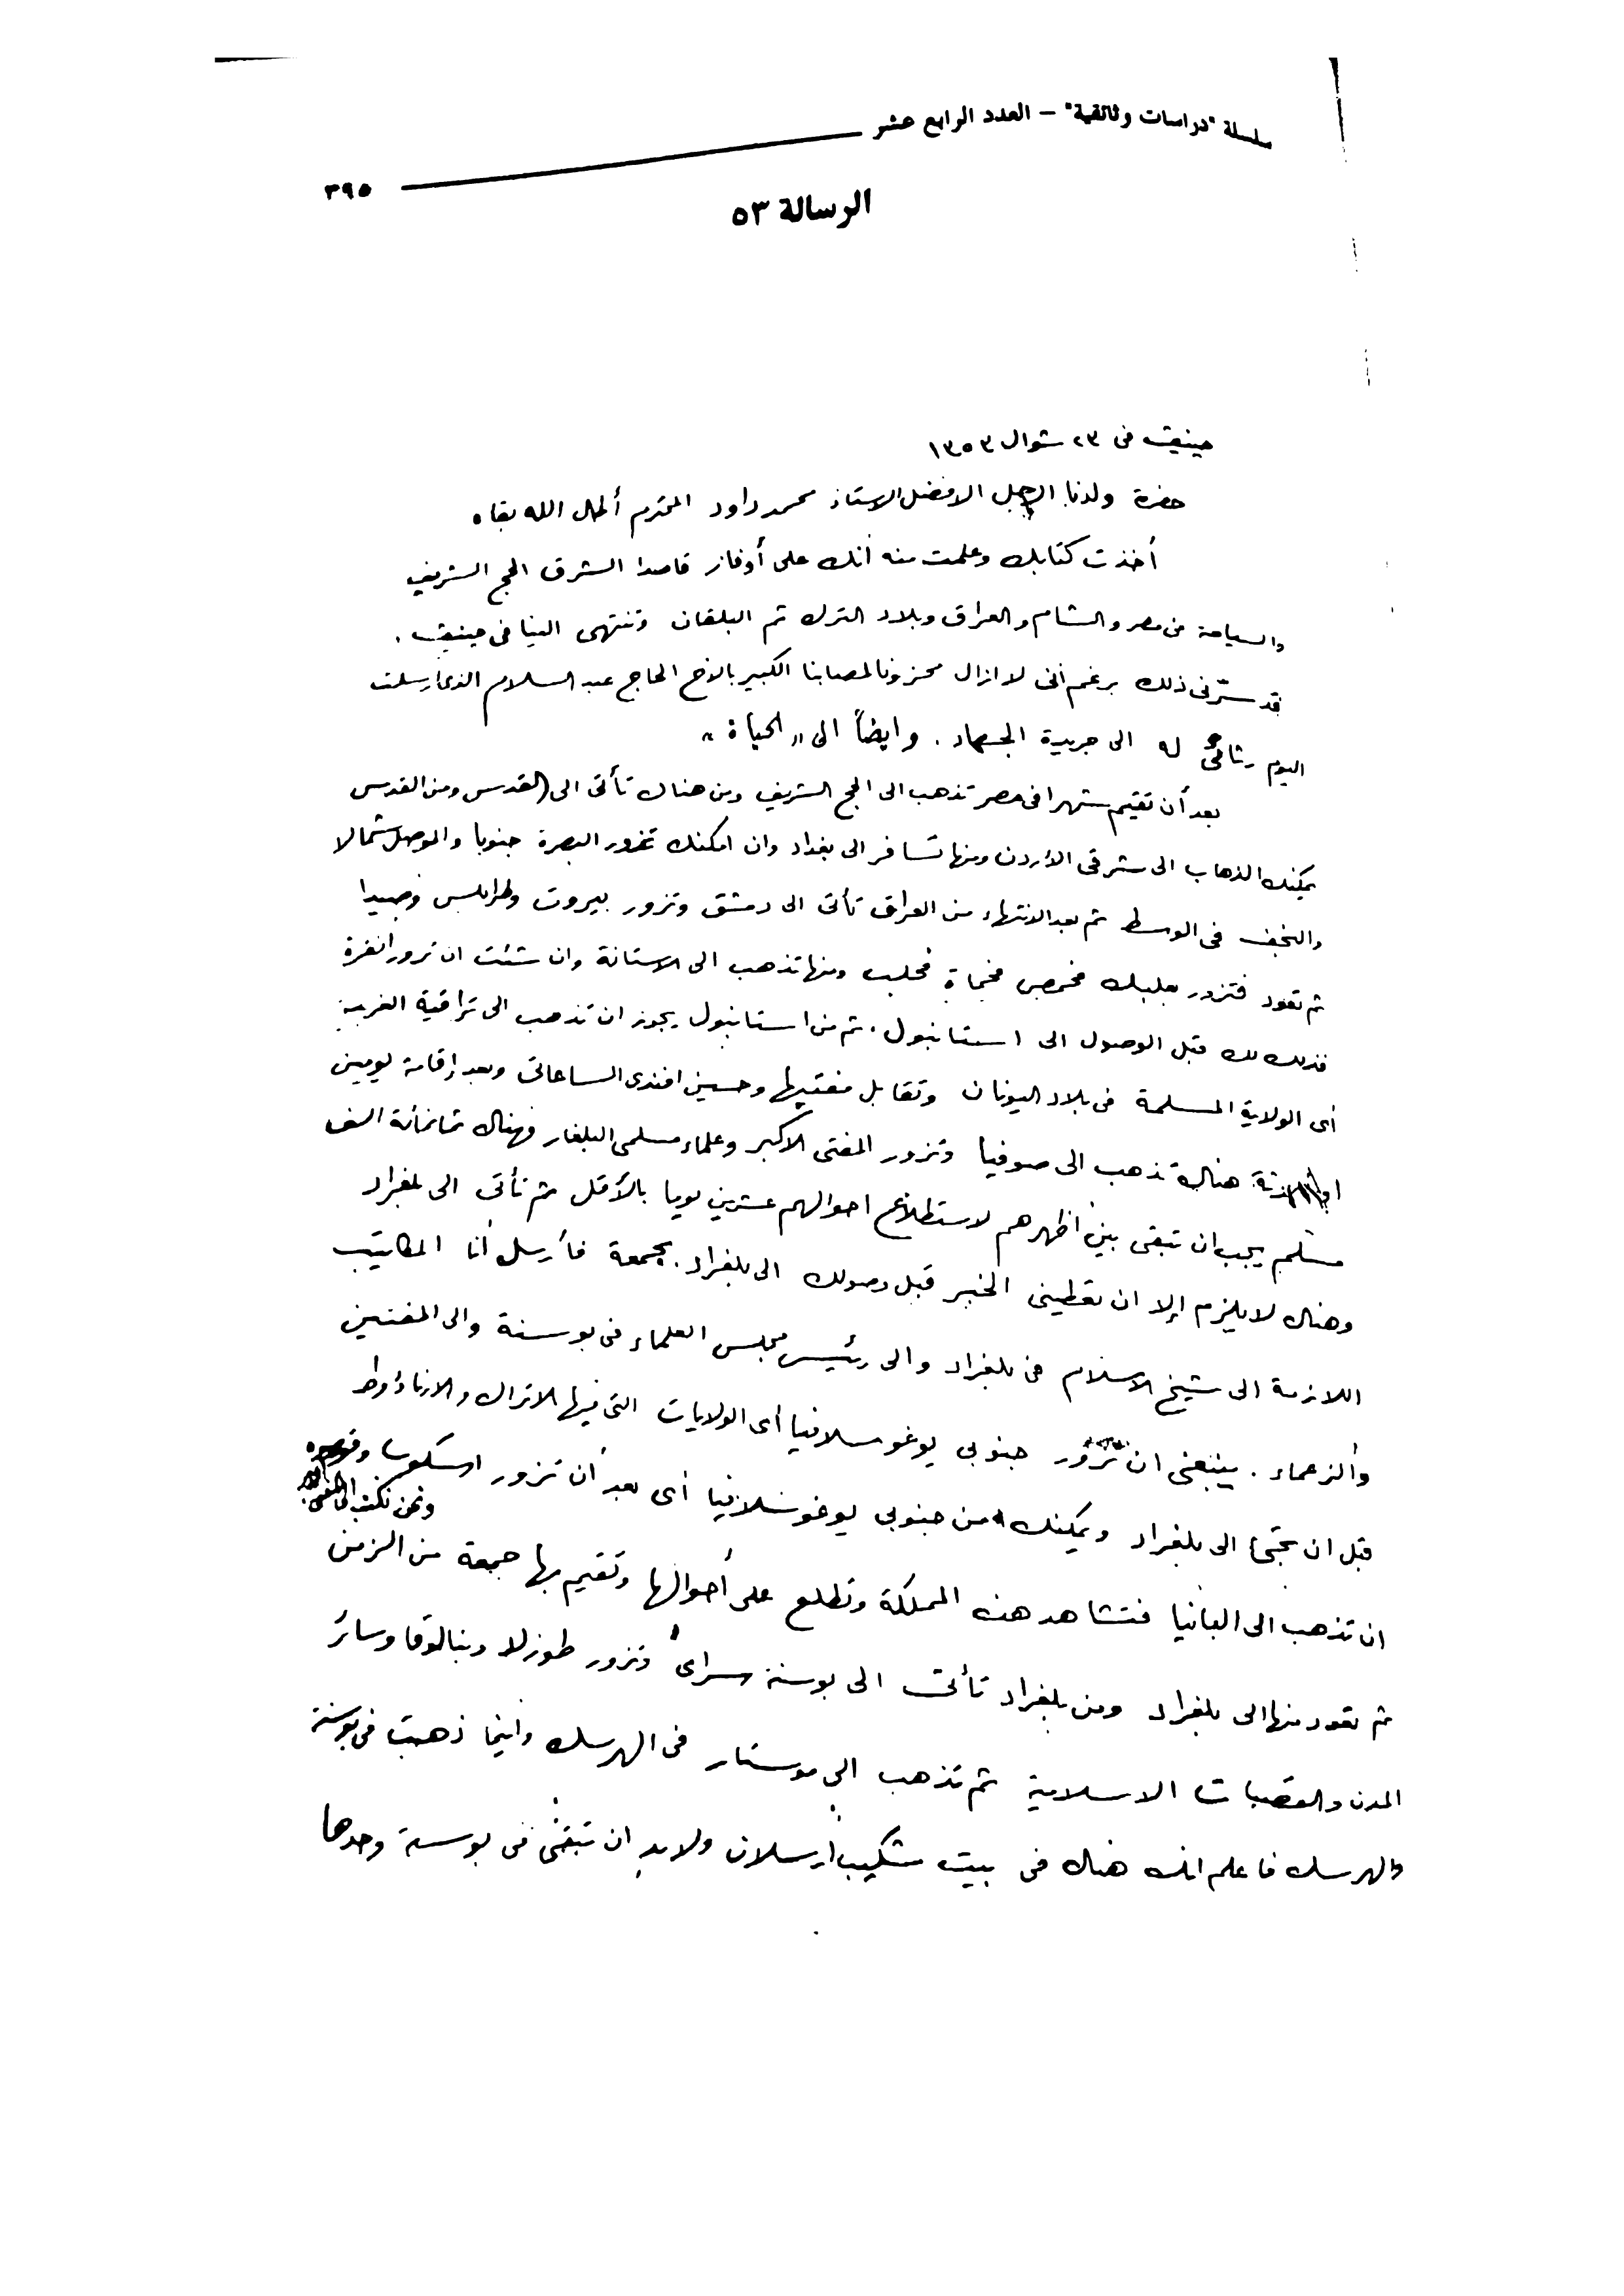 سلسلة "دراسات وثائقية" - العدد الرابع عشر
٣٩٥
الرسالة ٥٣
جينيف في ٢٣ شوال ١٣٥٣
حضرة ولدنا الاجل الافضل الاستاذ محمد داود المحترم أطال الله بقاه
أخذت كتابك وعلمت منه أنك على أوفاز قاصدا الشرق الحج الشريف
والسياحة من مصر والشام والعراق وبلاد الترك ثم البلقان وتنتهى الينا فى جينيف .
قد سرّنى ذلك برغم أنى لا ازال محزونا لمصابنا الكبير بالاخ الحاج عبد السلام الذى أرسلت
اليوم رثائى له الى جريدة الجهاد . وايضاً الى " الحياة "
بعد أن تقيم شهرا فى مصر تذهب الى الحج الشريف ومن هناك تأتى الى القدس ومن القدس
يمكنك الذهاب الى شرقى الأردن ومنها تسافر الى بغداد وان امكنك تزور البصرة جنوبا والموصل شمالا
والنجف فى الوسط ثم بعد الانتهاء من العراق تأتى الى دمشق وتزور بيروت وطرابلس وصيدا
ثم تعود فتزور بعلبك فحمص فحماة فحلب ومنها تذهب الى الاستانة وان شئت ان تزور انقرة
فذلك لك قبل الوصول الى استانبول . ثم من استانبول يجوز ان تذهب الى تراقية الغربية
أى الولاية المسلمة فى بلاد اليونان وتقابل مفتيها وحسين افندى الساعاتى وبعد إقامة يومين
او ثلاثة هناك تذهب الى صوفيا وتزور المفتى الاكبر وعلماء مسلمى البلغار فهناك ثمانمائة الف
مسلم يجب ان تبقى بين أظهرهم لاستطلاع احوالهم عشرين يوما بالأقل ثم تأتى الى بلغراد
وهناك لا يلزم إلا ان تعطينى الخبر قبل وصولك الى بلغراد بجمعة فأرسل أنا المكاتيب
اللازمة الى شيخ الاسلام فى بلغراد والى رئيس مجلس العلماء فى بوسنة والى المفتين
والزعماء . ينبغى ان تزور جنوبى يوغوسلافيا أى الولايات التى فيها الاتراك والارناؤوط
قبل ان تجئ الى بلغراد ويمكنك من جنوبى يوغوسلافيا أى بعد أن تزور اسكوب
ونحن نكتب الى
ان تذهب الى البانيا فتشاهد هذه المملكة وتطلع على أحوالها وتقيم بها جمعة من الزمن
ثم تعود منها الى بلغراد ومن بلغراد تأتى الى بوسنة سراى وتزور طوزلا وبنالوقا وسائر
المدن والقصبات الاسلامية ثم تذهب الى موستار فى الهرسك وأينما ذهبت فى بوسنة
والهرسك فاعلم انك هناك فى بيت شكيب أرسلان ولا بد ان تبقى فى بوسنة وحدها